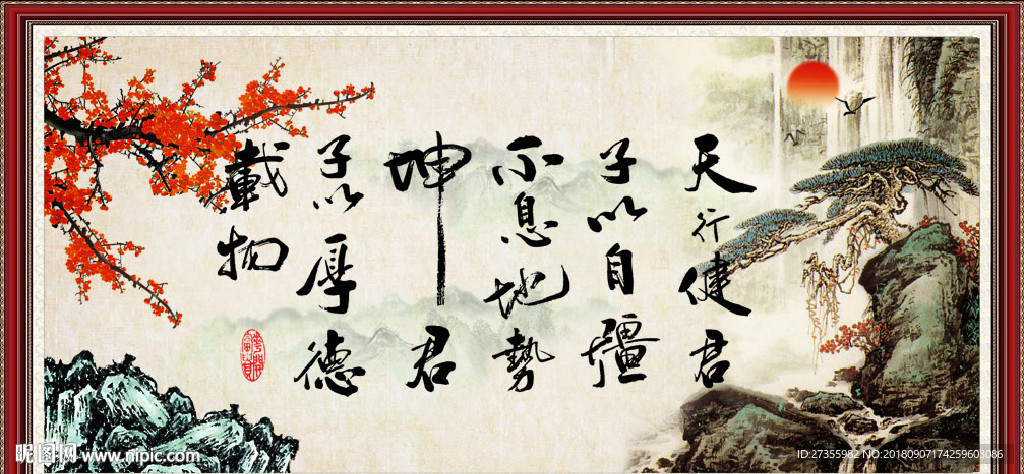 天行健君
子以自疆
不息地勢
坤君
子以厚德
載物
昵图网 www.nipic.com
ID:27355982 NO:20180907174259603086